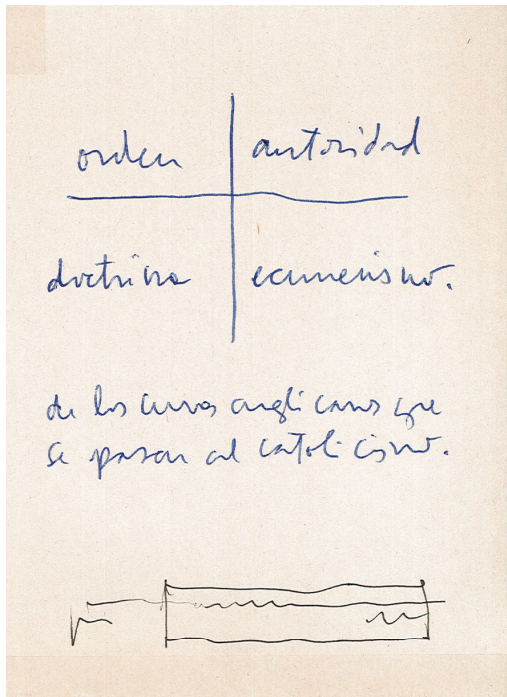 orden autoridad
doctrina ecumenismo.
de los curas anglicanos que
se pasan al catolicismo.